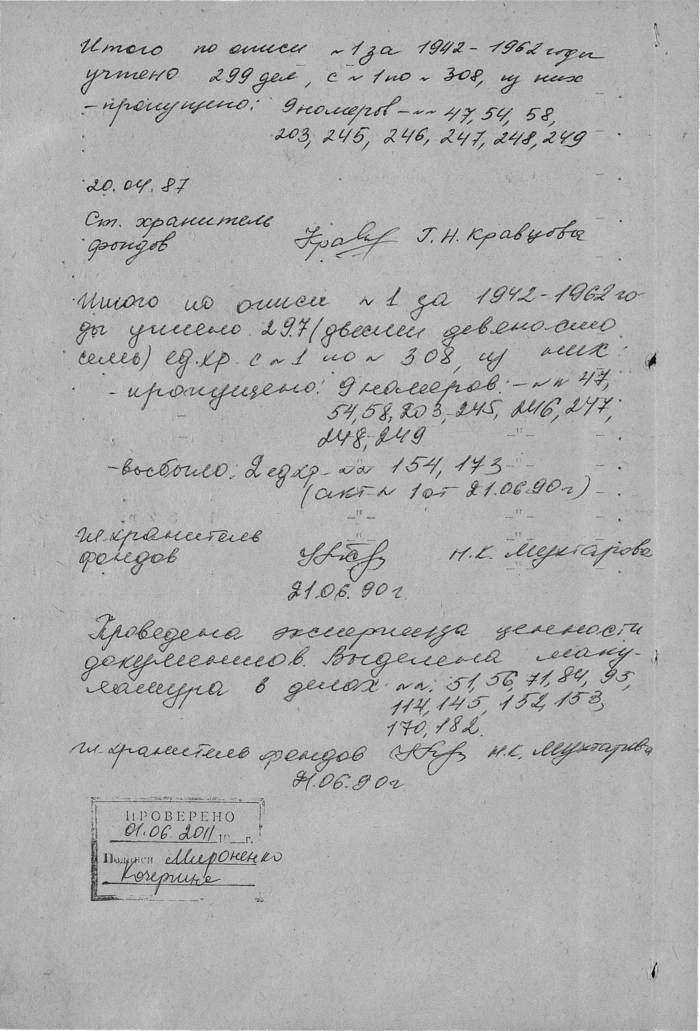 Итого по описи № 1 за 1942-1962 годы
учтено 299 дел, с № 1 по № 308, из них
- пропущено: 9 номеров - №№ 47, 54, 58,
203, 245, 246, 247, 248, 249
20.04.87
Ст. хранитель
фондов Г.Н. Кравцова
Итого по описи № 1 за 1942-1962 го-
ды учтено 297 (двести девяносто
семь) ед.хр. с № 1 по № 308, из них:
- пропущено: 9 номеров: - №№ 47,
54, 58, 203, 245, 246, 247,
248, 249
- выбыло: 2 ед.хр. - №№ 154, 173
(акт № 1 от 21.06.90 г.)
гл. хранитель
фондов Н.К. Мухтарова
21.06.90 г.
Проведена экспертиза ценности
документов. Выделена маку-
латура в делах №№: 51, 56, 71, 84, 95,
114, 145, 152, 153,
170, 182.
гл. хранитель фондов Н.К. Мухтарова
21.06.90 г.
ПРОВЕРЕНО
01.06.2011 19 г.
Подписи Мироненко